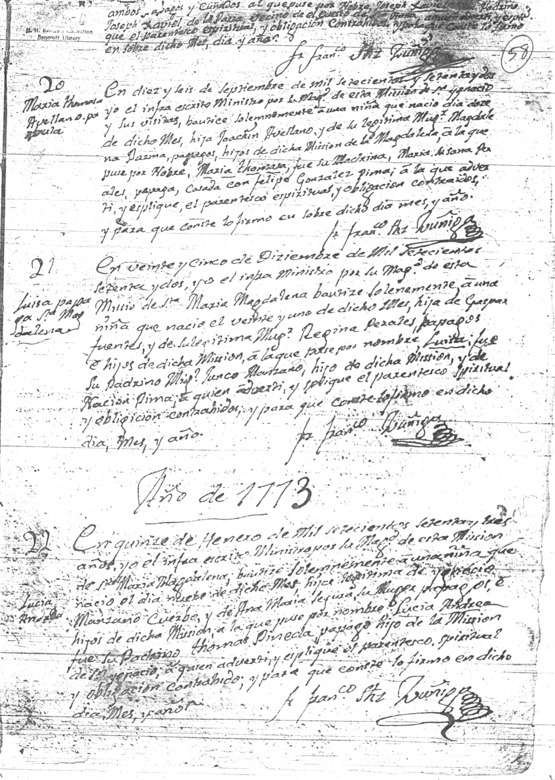 ambos Papagos y Cunados al que puse por Nobre, Joseph
Joseph Xavier
que el parentesco espiritual, y obligacion Contrahidos,
en sobre dicho Mes, dia, y año.
fr fran.co Shz Zuñiga
58
Bancroft Library
20
Maria thomasa
Avellano. pa
pula
En diez y seis de Septiembre de mil setecientos y setenta y dos
yo el infra escrito Ministro por su Mag.d de esta Mission de Sn Ygnacio
y sus visitas, bautize solemnemente a una niña que nacio dia doze
de dicho Mes, hija Joachin Avellano, y de su legitima Mug.r Magdale
na Pazma, papagos, hijos de dicha Mision de la Magdalena, a la que
puse por Nobre, Maria thomasa, fue su Madrina, Maria Susana Per
ales, papaga, Casada con felipe Gonzalez Pima; a la que adver
ti, y esplique, el parentesco espiritual, y obligacion contrahidos,
y para que conste lo firmo en sobre dicho dia mes, y año.
fr fran.co Shz Zuñiga
21
Luisa papa
ga Sta Mag
dalena
En veinte y cinco de Diziembre de Mil setecientos
setenta y dos, yo el infra Ministro por su Mag.d de esta
Missio de Sta Maria Magdalena bautize solenemente, a una
niña que nacio el veinte y uno de dicho Mes, hija de Gaspar
fuentes, y de su legitima Mug.r Regina Perales, papagos
e hijos de dicha Mission, a la que puse por nombre Luisa; fue
su Padrino Mig.l Junco Manzano, hijo de dicha Mission, y de
Nacion Pima; a quien adverti, y esplique el parentesco spiritual
y obligicion contrahidos, y para que conste lo firmo en dicho
dia, Mes, y año.
fr fran.co Zuñiga
Año de 1773
22
Lucia
Andrea
En quinze de Henero de Mil setecientos setenta y tres
años, yo el infra escrito Ministro por su Mag.d de esta Mission
de Sta Maria Magdalena, bautize solenemente a una niña que
nacio el dia nuebe de dicho Mes, hija legitima de Ygnacio
Manzano Cuerbo, y de Ana Maria su Muger papagos, e
hijos de dicha Mission, a la que puse por nombre Lucia Andrea
fue su Padrino thomas Pineda, papago hijo de la Mission
de Sn Ygnacio, a quien adverti, y esplique el parentesco, spiritual
y obligacion Contrahido; y para que conste lo firmo en dicho
dia, Mes, y año.
fr fran.co Shz Zuñiga